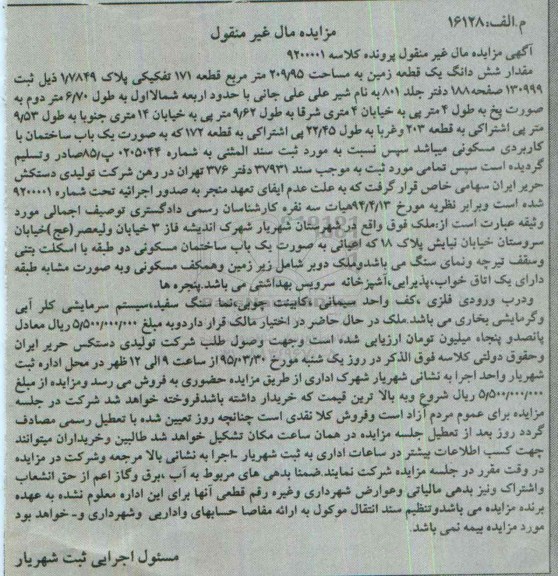 م.الف:۱۶۱۲۸
مزایده مال غیر منقول
آگهی مزایده مال غیر منقول پرونده کلاسه ۹۲۰۰۰۰۱
مقدار شش دانگ یک قطعه زمین به مساحت ۲۰۹/۹۵ متر مربع قطعه ۱۷۱ تفکیکی پلاک ۱/۷۸۴۹ ذیل ثبت
۱۳۰۹۹۹ صفحه۱۸۸ دفتر جلد ۸۰۱ به نام شیر علی علی جانی با حدود اربعه شمالااول به طول ۶/۷۰ متر دوم به
صورت پخ به طول ۴ متر پی به خیابان ۴ متری شرقا به طول ۹/۶۲ متر پی به خیابان ۱۴ متری جنوبا به طول ۹/۵۳
متر پی اشتراکی به قطعه ۲۰۳ وغربا به طول ۲۲/۴۵ پی اشتراکی به قطعه ۱۷۲ که به صورت یک باب ساختمان با
کاربردی مسکونی میباشد سپس نسبت به مورد ثبت سند المثنی به شماره ۰۲۰۵۰۴۴ پ/۸۵صادر وتسلیم
گردیده است سپس تمامی مورد ثبت به موجب سند ۳۷۹۳۱ دفتر ۳۷۶ تهران در رهن شرکت تولیدی دستکش
حریر ایران سهامی خاص قرار گرفت که به علت عدم ایفای تعهد منجر به صدور اجرائیه تحت شماره ۹۲۰۰۰۰۱
شده است وبرابر نظریه مورخ ۹۴/۴/۱۳هیات سه نفره کارشناسان رسمی دادگستری توصیف اجمالی مورد
وثیقه عبارت است از:ملک فوق واقع در شهرستان شهریار شهرک اندیشه فاز ۳ خیابان ولیعصر(عج)خیابان
سروستان خیابان نیایش پلاک ۱۸ که اعیانی به صورت یک باب ساختمان مسکونی دو طبقه با اسکلت بتنی
وسقف تیرچه ونمای سنگ می باشدوملک دوبر شامل زیر زمین وهمکف مسکونی وبه صورت مشابه طبقه
دارای یک اتاق خواب،پذیرایی،آشپزخانه سرویس بهداشتی می باشد.پنجره ها
ودرب ورودی فلزی ،کف واحد سیمانی ،کابینت چوبی،نما سنگ سفید،سیستم سرمایشی کلر آبی
وگرمایشی بخاری می باشد.ملک در حال حاضر در اختیار مالک قرار داردوبه مبلغ ۵/۵۰۰/۰۰۰/۰۰۰ ریال معادل
پانصدو پنجاه میلیون تومان ارزیابی شده است وجهت وصول طلب شرکت تولیدی دستکس حریر ایران
وحقوق دولتی کلاسه فوق الذکر در روز یک شنبه مورخ ۹۵/۰۳/۳۰ از ساعت ۹ الی ۱۲ ظهر در محل اداره ثبت
شهریار واحد اجرا به نشانی شهریار شهرک اداری از طریق مزایده حضوری به فروش می رسد ومزایده از مبلغ
۵/۵۰۰/۰۰۰/۰۰۰ ریال شروع وبه بالا ترین قیمت که خریدار داشته باشدفروخته خواهد شد شرکت در جلسه
مزایده برای عموم مردم آزاد است وفروش کلا نقدی است چنانچه روز تعیین شده با تعطیل رسمی مصادف
گردد روز بعد از تعطیل جلسه مزایده در همان ساعت مکان تشکیل خواهد شد طالبین وخریداران میتوانند
جهت کسب اطلاعات بیشتر در ساعات اداری به ثبت شهریار ـاجرا به نشانی بالا مرجعه وشرکت در مزایده
در وقت مقرر در جلسه مزایده شرکت نمایند.ضمنا بدهی های مربوط به آب ،برق وگاز اعم از حق انشعاب
واشتراک ونیز بدهی مالیاتی وعوارض شهرداری وغیره رقم قطعی آنها برای این اداره معلوم نشده به عهده
برنده مزایده می باشدوتنظیم سند انتقال موکول به ارائه مفاصا حسابهای واداریی وشهرداری و- خواهد بود
مورد مزایده بیمه نمی باشد.
مسئول اجرایی ثبت شهریار